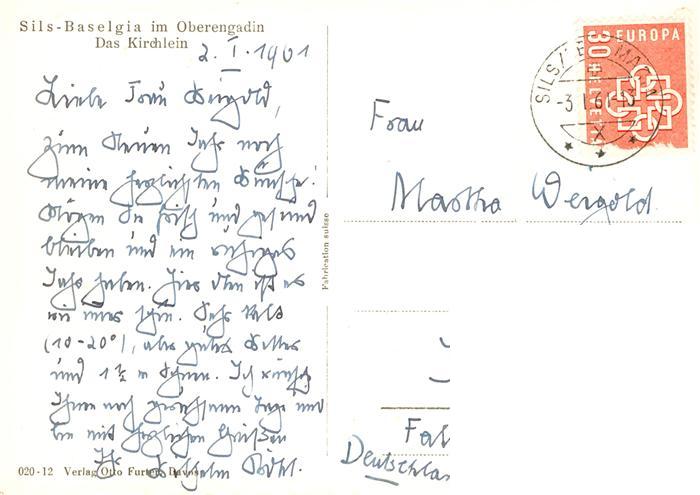 Sils-Baselgia im Oberengadin
Das Kirchlein
2. I. 1961
Liebe Frau Weigold,
zum Neuen Jahr noch
meine herzlichsten Wünsche!
Mögen Sie frisch und gesund
bleiben und ein ruhiges
Jahr haben. Hier oben ist es
wie immer schön. Sehr kalt
(10-20°), aber gutes Wetter
und 1½ m Schnee. Ich wünsche
Ihnen noch geruhsame Tage und
bin mit herzlichen Grüßen
Ihr Wilhelm
020-12 Verlag Otto Furter, Davos
Fabrication suisse
EUROPA
30 HELVETIA
SILS/ MARIA
-3.I.61-13
Frau
Martha Weigold
Fal
Deutschla